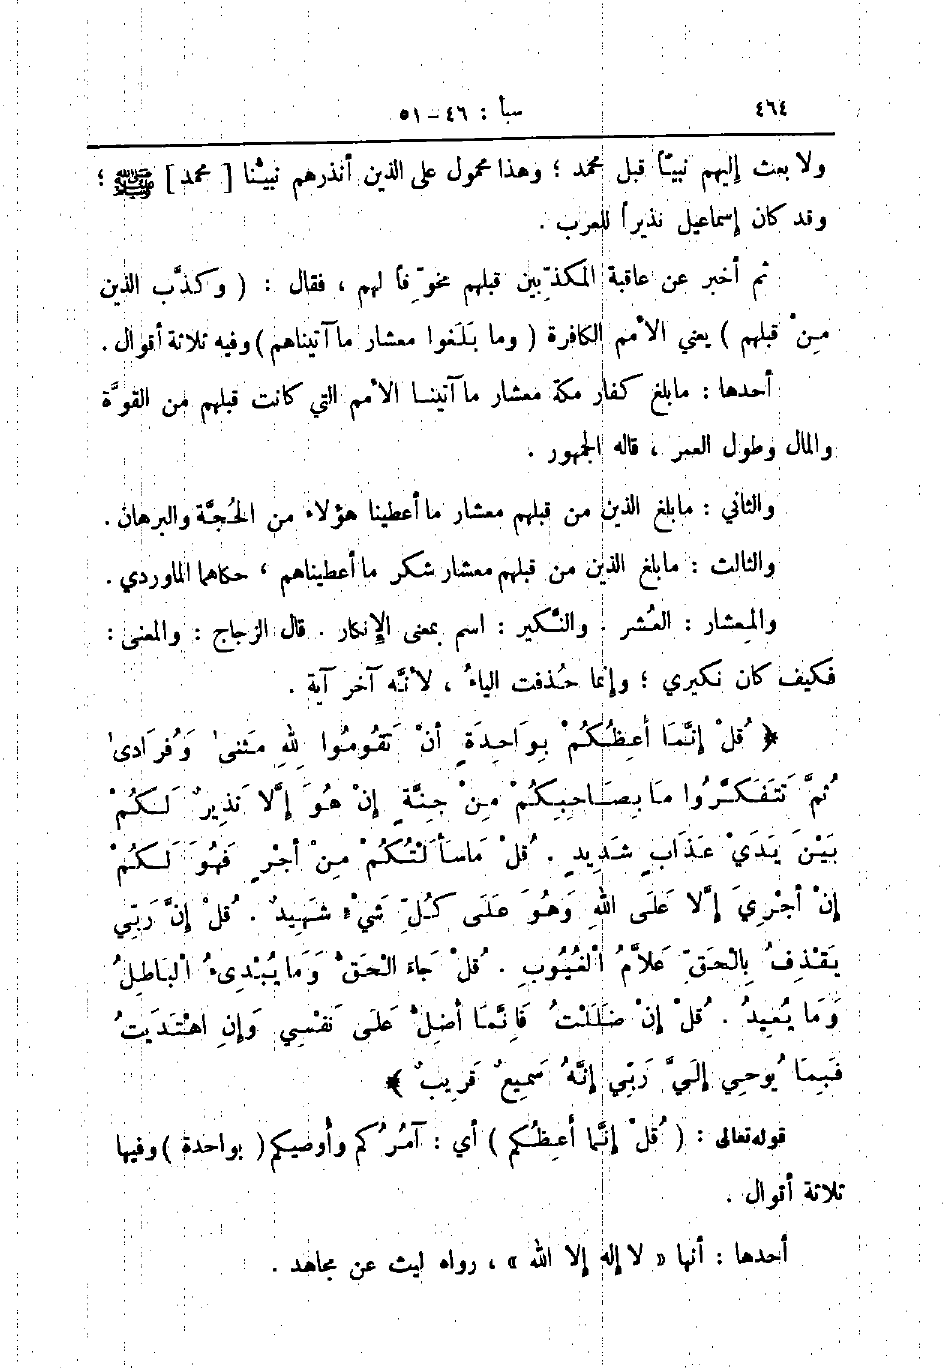 ٤٦٤
سبأ : ٤٦ – ٥١
ولا بعث إليهم نبيّاً قبل محمد ؛ وهذا محمول على الذين أنذرهم نبيّنا [ محمد ] ﷺ ؛
وقد كان إسماعيل نذيراً للعرب .
ثم أخبر عن عاقبة المكذّبين قبلهم مخوِّفاً لهم ، فقال : ( وكذَّب الذين
مِنْ قبلهم ) يعني الأمم الكافرة ( وما بَلَغوا معشار ما آتيناهم ) وفيه ثلاثة أقوال .
أحدها : ما بلغ كفار مكة معشار ما آتينا الأمم التي كانت قبلهم من القوَّة
والمال وطول العمر ، قاله الجمهور .
والثاني : ما بلغ الذين من قبلهم معشار ما أعطينا هؤلاء من الحُجَّة والبرهان .
والثالث : ما بلغ الذين من قبلهم معشار شكر ما أعطيناهم ، حكاهما الماوردي .
والمِعشار : العُشر . والنَّكير : اسم بمعنى الإنكار . قال الزجاج : والمعنى :
فكيف كان نكيري ؛ وإنما حُذفت الياءُ ، لأنَّه آخر آية .
﴿ قُلْ إِنَّمَا أَعِظُكُمْ بِوَاحِدَةٍ أَنْ تَقُومُوا لِلهِ مَثنىٰ وَفُرَادىٰ
ثُمَّ تَتَفَكَّرُوا مَا بِصَاحِبِكُمْ مِنْ جِنَّةٍ إِنْ هُوَ إِلَّا نَذِيرٌ لَكُمْ
بَيْنَ يَدَيْ عَذَابٍ شَدِيدٍ . قُلْ مَا سَأَلْتُكُمْ مِنْ أَجْرٍ فَهُوَ لَكُمْ
إِنْ أَجْرِيَ إِلَّا عَلَى اللهِ وَهُوَ عَلَى كُلِّ شَيْءٍ شَهِيدٌ . قُلْ إِنَّ رَبِّي
يَقْذِفُ بِالْحَقِّ عَلاَّمُ الْغُيُوبِ . قُلْ جَاءَ الْحَقُّ وَمَا يُبْدِىءُ الْبَاطِلُ
وَمَا يُعِيدُ . قُلْ إِنْ ضَلَلْتُ فَإِنَّمَا أَضِلُّ عَلَى نَفْسِي وَإِنِ اهْتَدَيْتُ
فَبِمَا يُوحِي إِلَيَّ رَبِّي إِنَّهُ سَمِيعٌ قَرِيبٌ ﴾
قوله تعالى : ( قُلْ إِنَّما أَعِظُكم ) أي : آمُرُكم وأُوصيكم ( بواحدة ) وفيها
ثلاثة أقوال .
أحدها : أنها « لا إله إلا الله » ، رواه ليث عن مجاهد .